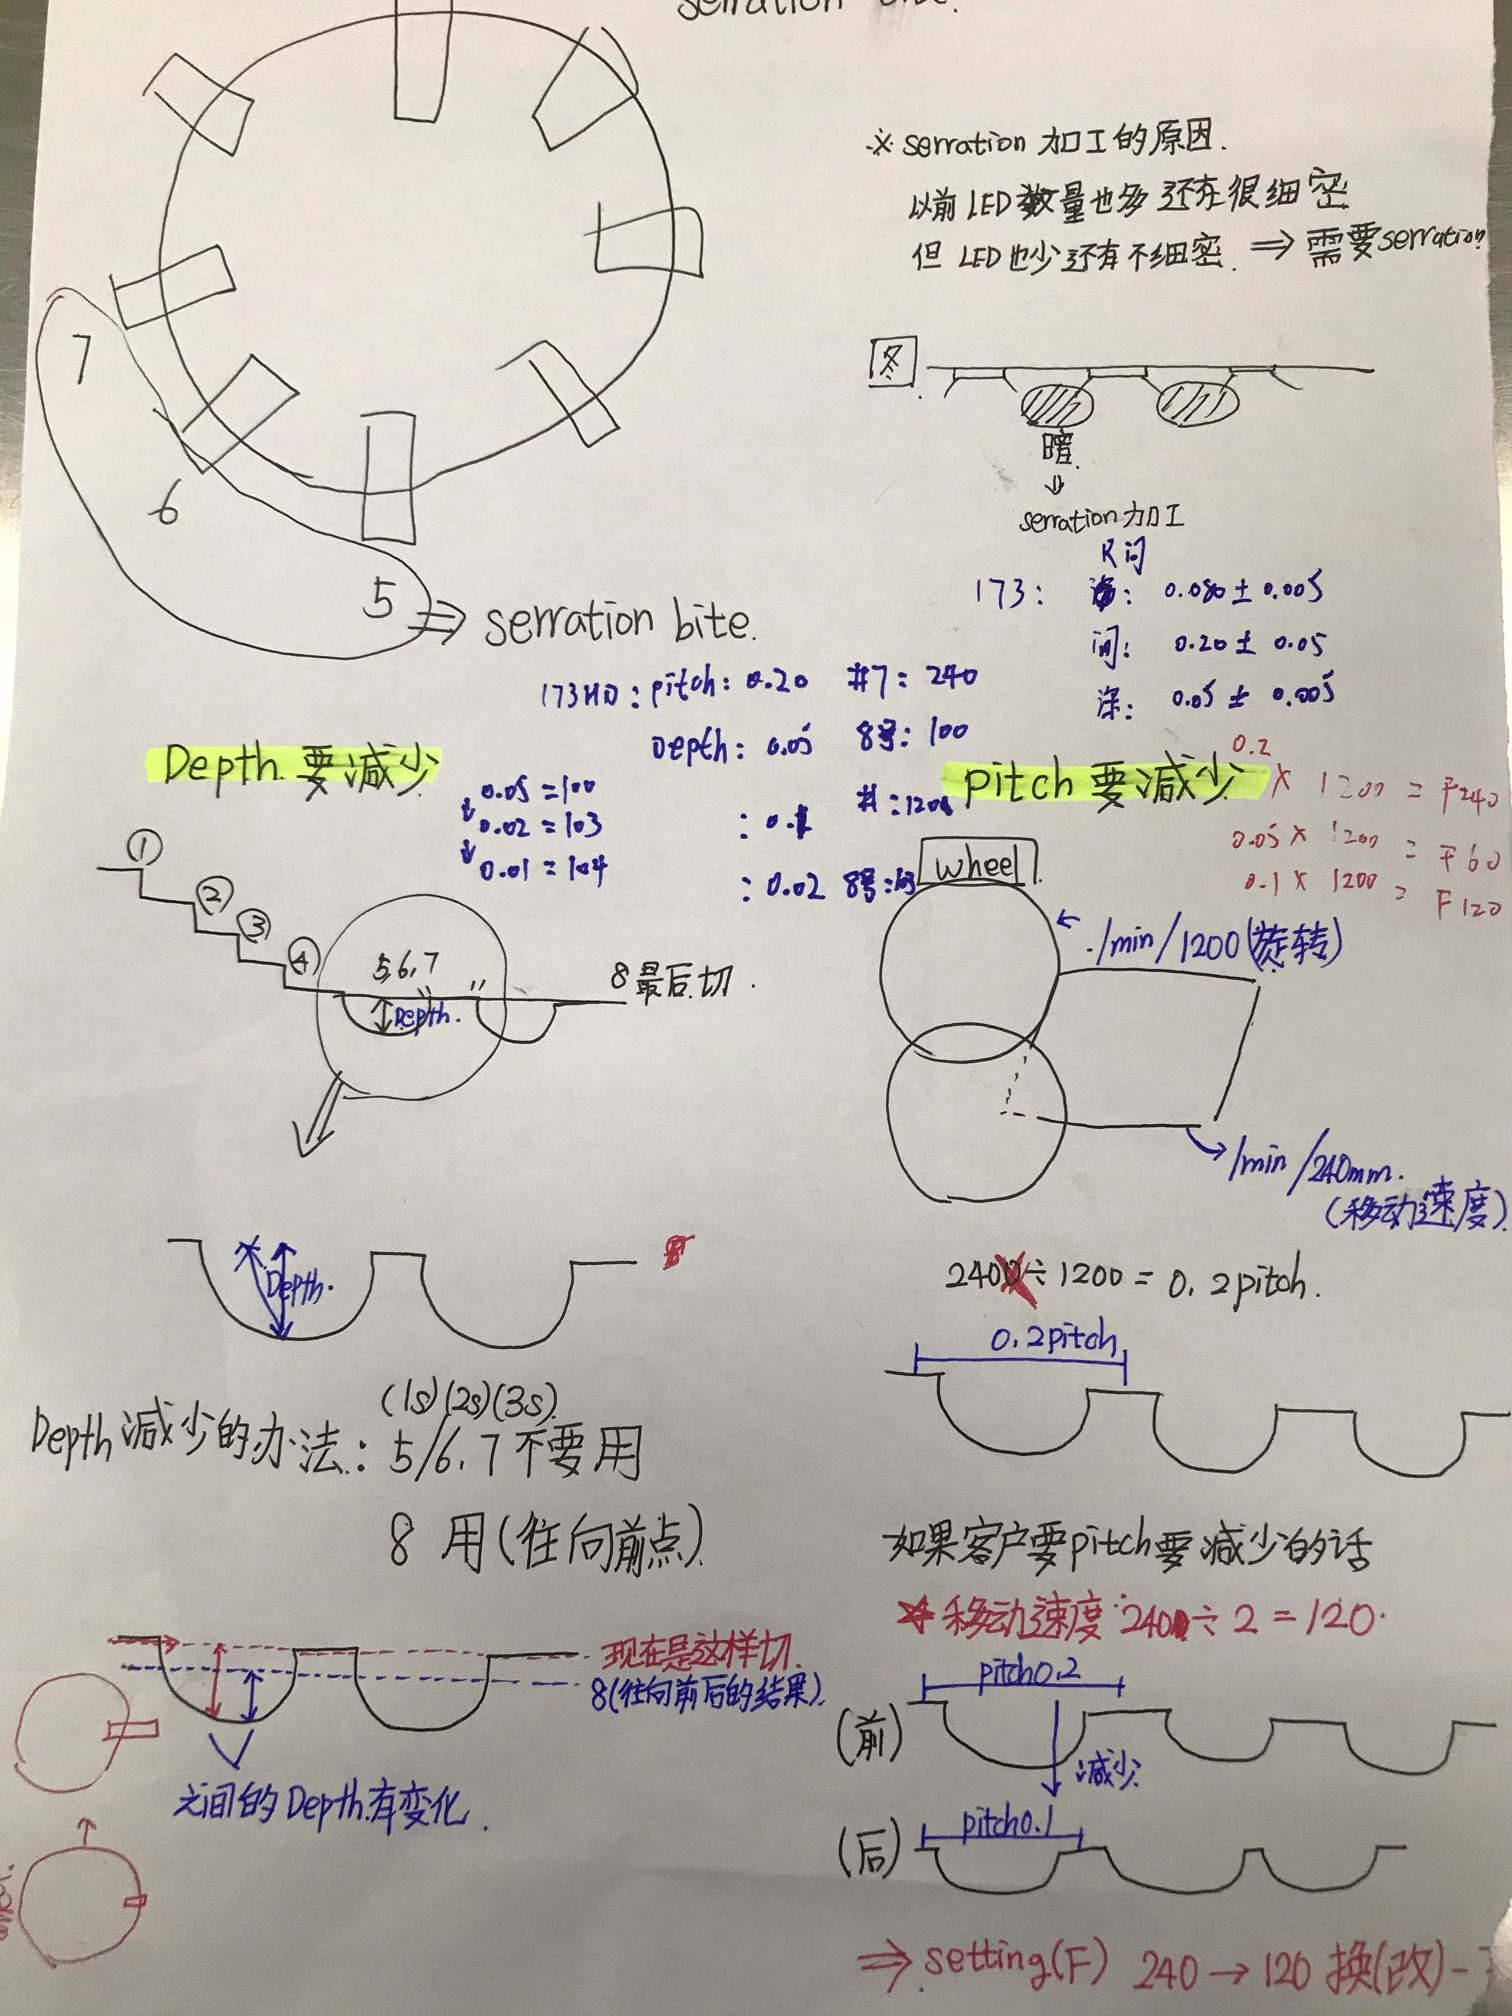 serration bite.
※ serration 加工的原因.
以前 LED 数量也多 还有很细密
但 LED 也少 还有不细密. ⇒ 需要serration
7
6
5 ⇒ serration bite.
暗.
⇓
serration 加工
R 间
173: : 0.080 ± 0.005
间: 0.20 ± 0.05
深: 0.05 ± 0.005
173HD: pitch: 0.20 #7: 240
Depth: 0.05 8号: 100
: 0.1 #: 120
: 0.02 8号:
Depth 要减少
0.05 = 100
↓ 0.02 = 103
↓ 0.01 = 104
① ② ③ ④
5,6,7
Depth.
8 最后切.
Depth.
Depth 减少的办法: 5/6.7 不要用
(1s)(2s)(3s).
8 用 (往向前点)
现在是这样切.
8(往向前后的结果).
之间的 Depth.有变化.
pitch 要减少
0.2 × 1200 = F240
0.05 × 1200 = F60
0.1 × 1200 = F120
wheel
./min/1200(旋转)
/min/240mm.
(移动速度).
240 ÷ 1200 = 0.2pitch.
0.2pitch
如果客户要pitch要减少的话
☆ 移动速度 240 ÷ 2 = 120.
pitch0.2
(前)
减少
pitch0.1
(后)
⇒ setting(F) 240 → 120 换(改)-